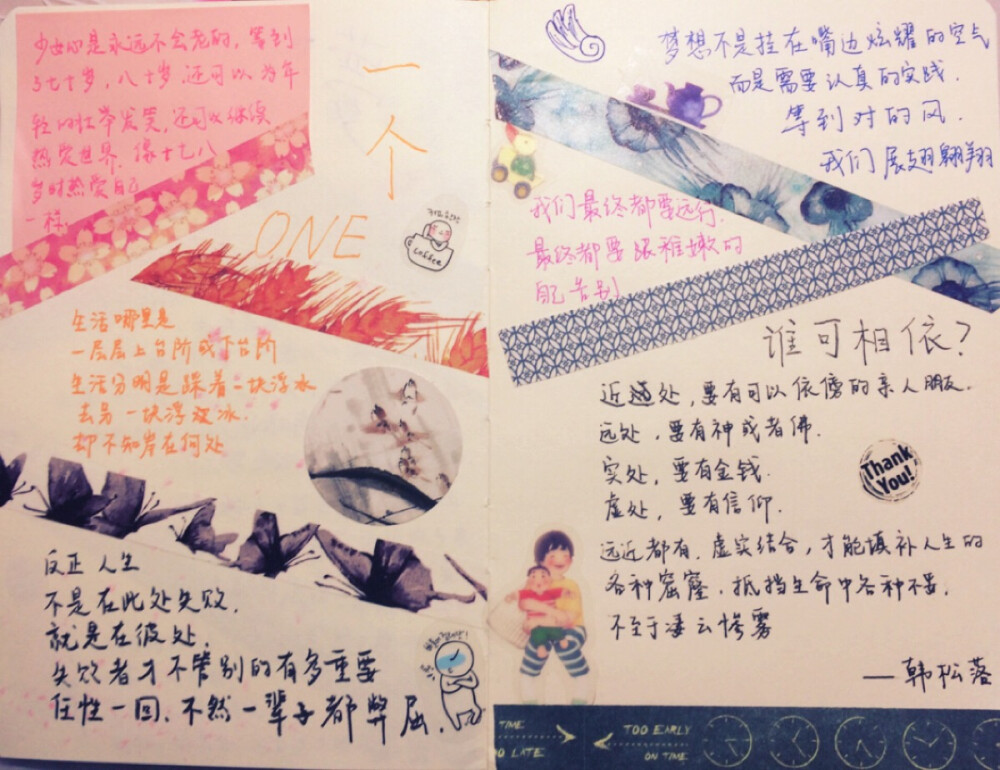 少女心是永远不会老的，等到
了七十岁，八十岁，还可以为年
轻的壮举发笑，还可以继续
热爱世界，像十七八
岁时热爱自己
一样。
一个
ONE
Coffee
生活哪里是
一层层上台阶或下台阶
生活分明是踩着一块浮冰
去另一块浮冰．
却不知岸在何处
反正 人生
不是在此处失败．
就是在彼处．
失败者才不管别的有多重要
任性一回、不然一辈子都
屈．
梦想不是挂在嘴边炫耀的空气
而是需要认真的实践．
等到对的风．
我们展翅翱翔
我们最终都要远行．
最终都要跟稚嫩的
自己告别
谁可相依？
近处，要有可以依傍的亲人朋友．
远处，要有神或者佛．
实处，要有金钱．
虚处，要有信仰．
远近都有．虚实结合，才能填补人生的
各种窟窿．抵挡生命中各种不妥．
不至于凄云惨雾
—韩松落
Thank
You!
TIME
OO LATE
TOO EARLY
ON TIME